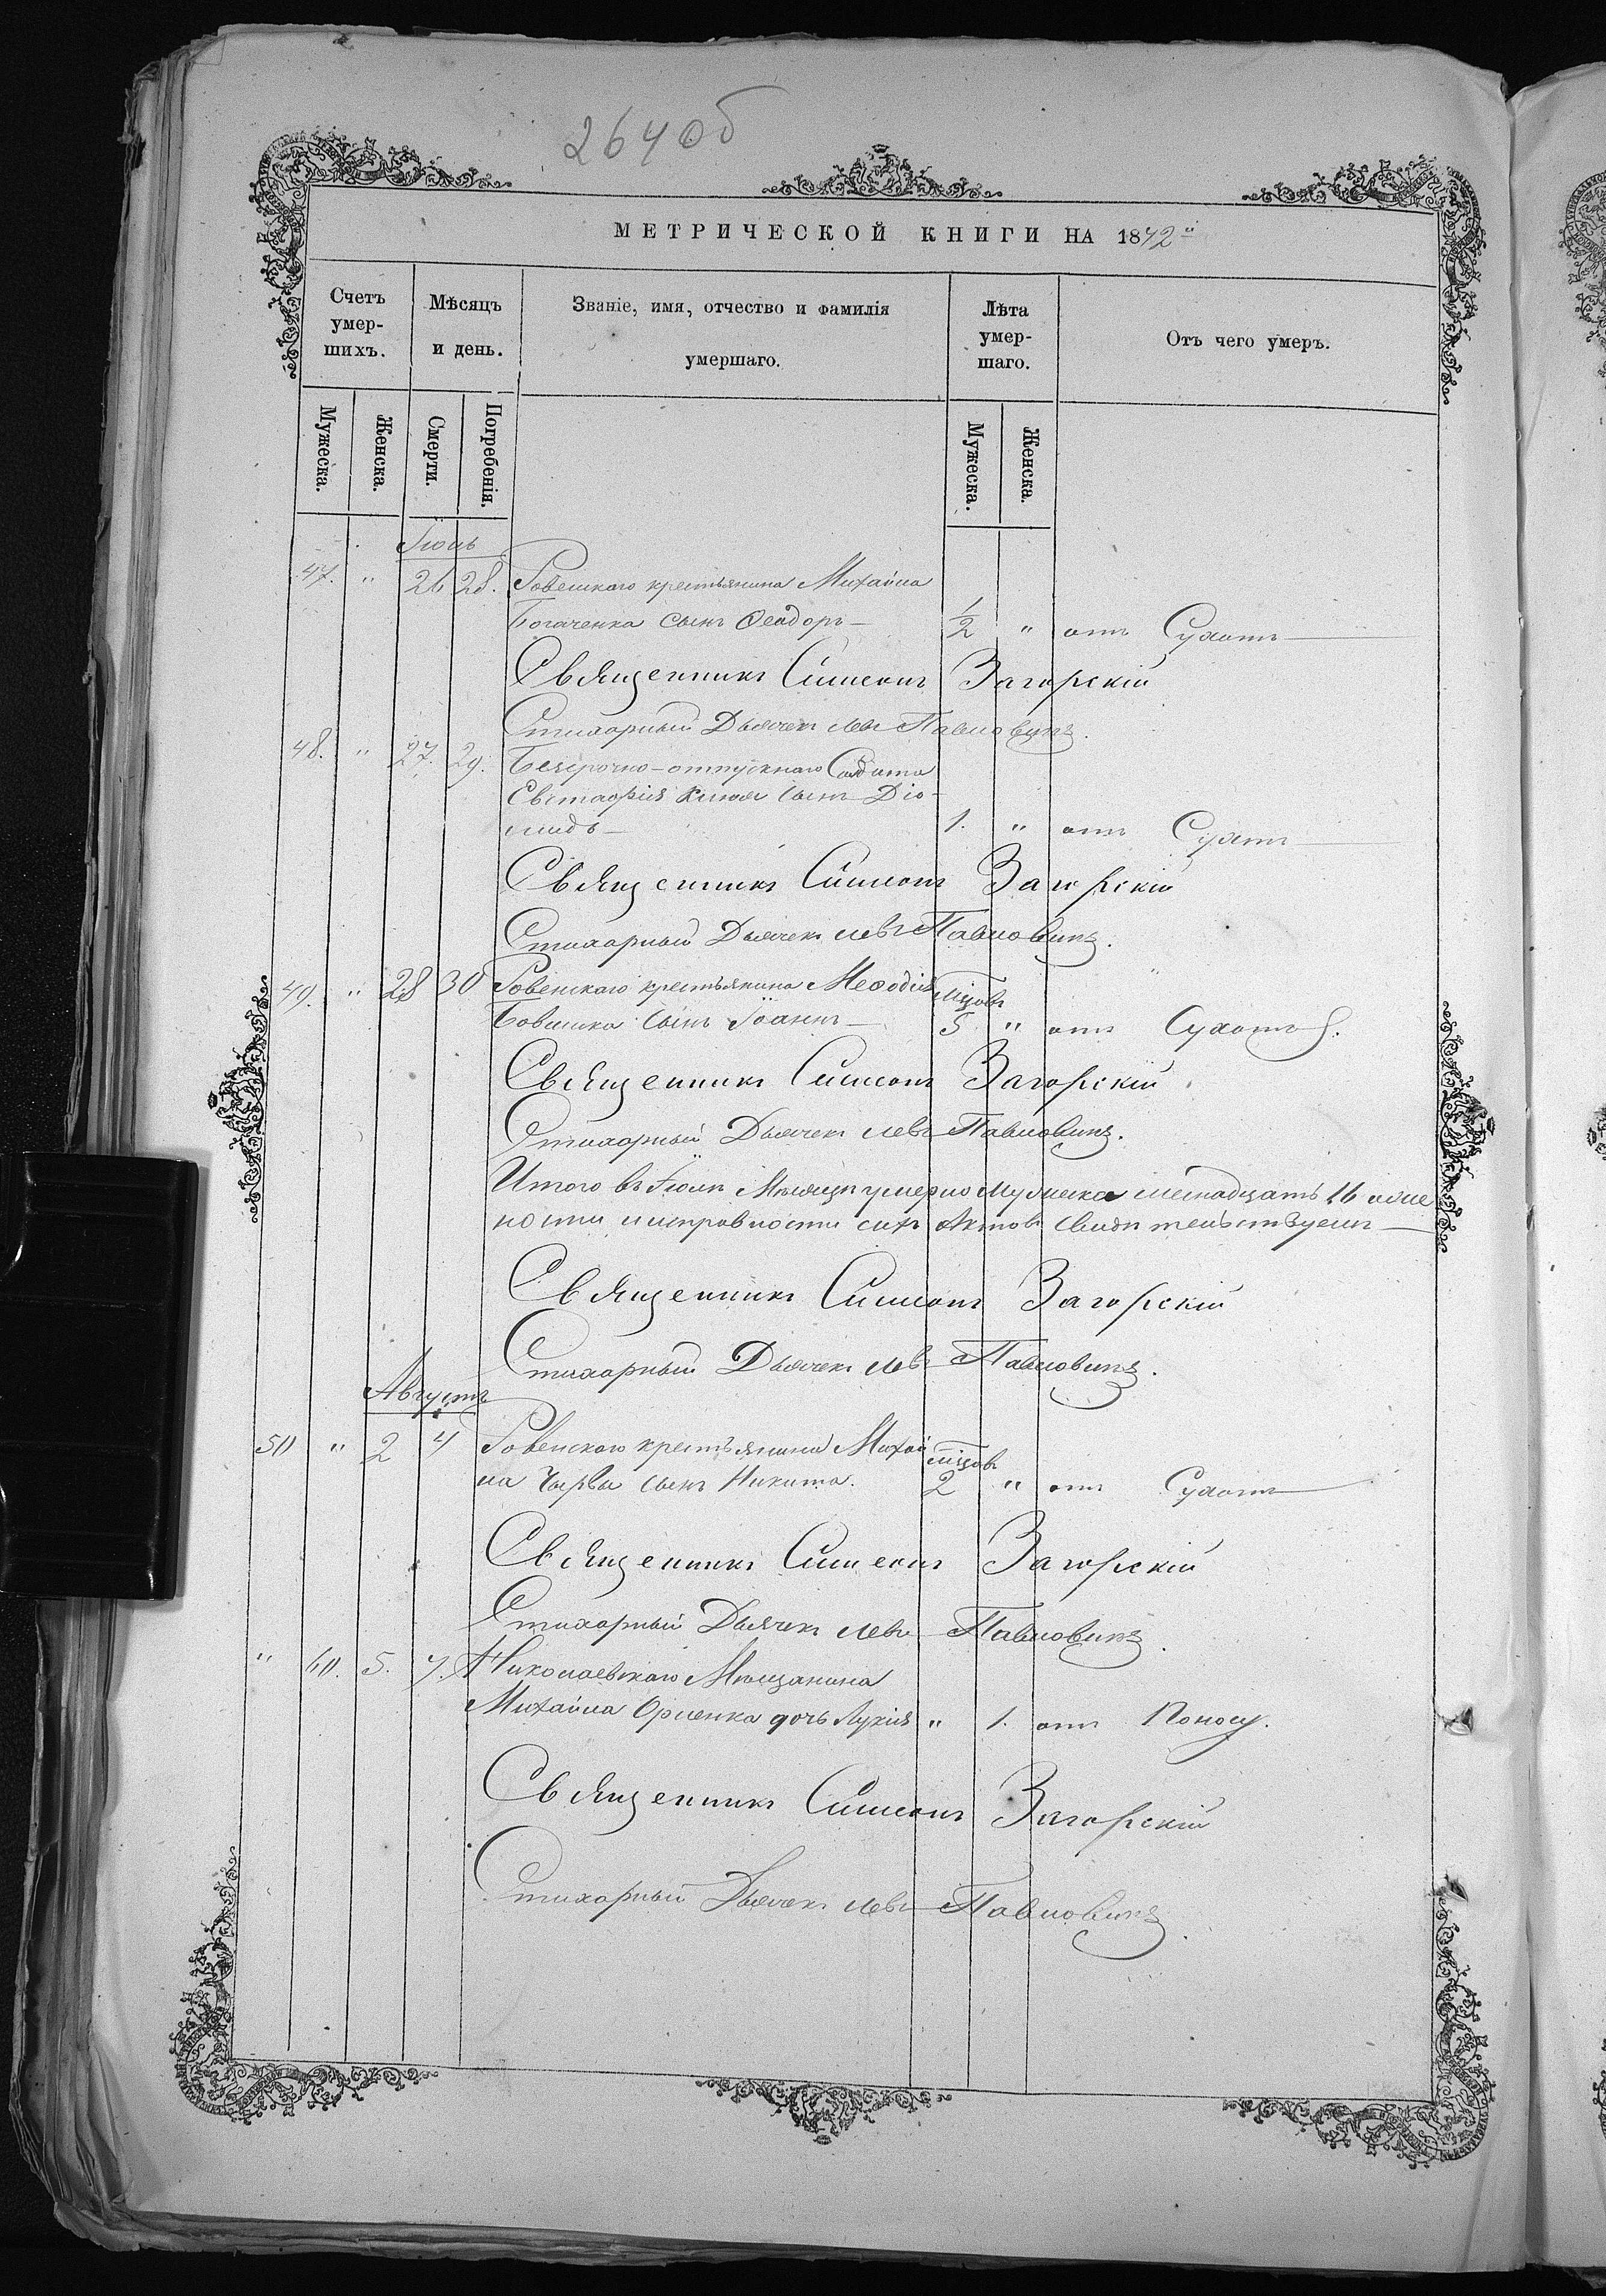 264об
МЕТРИЧЕСКОЙ КНИГИ НА 1872"
Счетъ умер-шихъ.
Мѣсяцъ и день.
Званіе, имя, отчество и фамилія умершаго.
Лѣта умер-шаго.
Отъ чего умеръ.
Мужеска.
Женска.
Смерти.
Погребенія.
Мужеска.
Женска.
Іюль
47. " 26 28. Ровенскаго крестьянина Михаила
Богаченка сынъ Ѳеодоръ— 1/2 " отъ Сухотъ
Священникъ Симеонъ Загорскій
Стихарный Дьячекъ Левъ Павловичъ.
48. " 27. 29. Безсрочно-отпускнаго Солдата
Евстафія сынъ Діо-
мидъ— 1. " отъ Сухотъ
Священникъ Симеонъ Загорскій
Стихарный Дьячекъ Левъ Павловичъ.
49. " 28 30 Ровенскаго крестьянина Меѳодія мѣцовъ
сынъ Іоаннъ— 5 " отъ Сухотъ.
Священникъ Симеонъ Загорскій
Стихарный Дьячекъ Левъ Павловичъ.
Итого въ Іюлѣ Мѣсяцѣ умерло Мужеска шестнадцать 16
ности и исправности сихъ Актовъ свидѣтельствуемъ—
Священникъ Симеонъ Загорскій
Стихарный Дьячекъ Левъ Павловичъ.
Августъ
50 " 2 4 Ровенскаго крестьянина Михаи мѣцовъ
ла сынъ Никита. 2 " отъ Сухотъ
Священникъ Симеонъ Загорскій
Стихарный Дьячекъ Левъ Павловичъ.
" 60. 5. 7. Николаевскаго Мѣщанина
Михаила Орленка дочь Лукія " 1. отъ Поносу.
Священникъ Симеонъ Загорскій
Стихарный Дьячекъ Левъ Павловичъ.